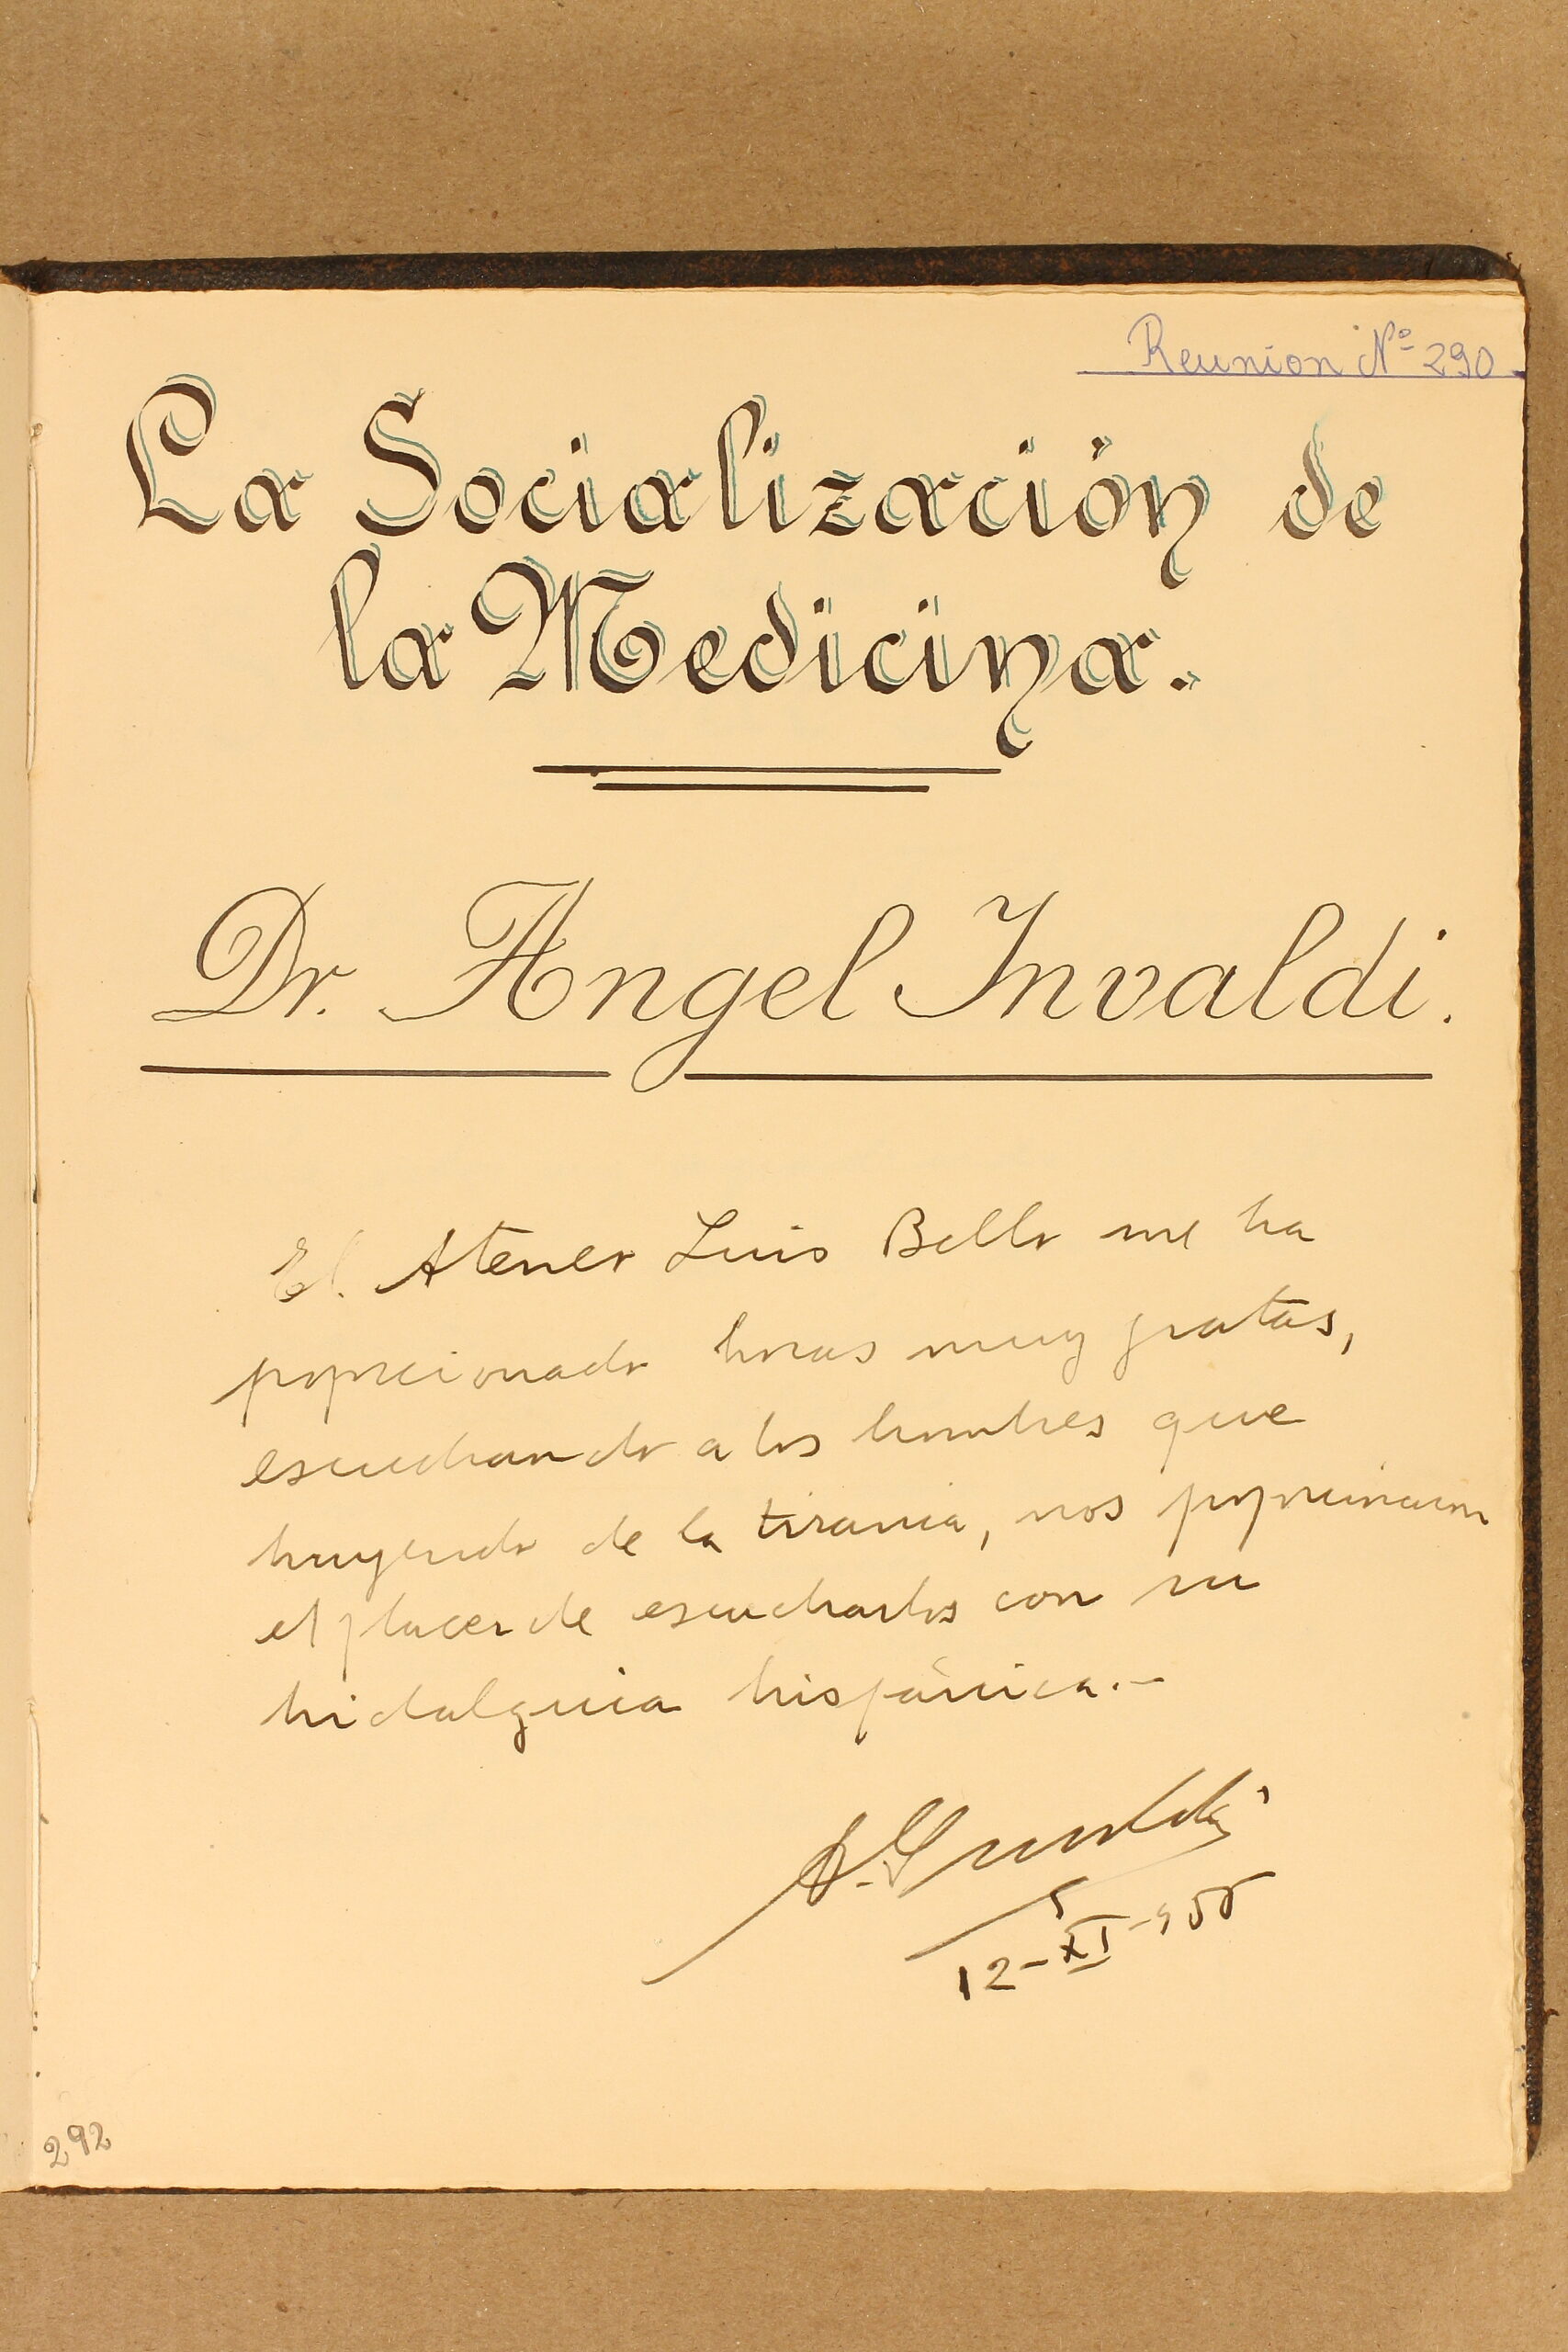 Reunion Nº 290
La Socialización de
la Medicina.
Dr. Angel Invaldi.
El Ateneo Luis Bello me ha
proporcionado horas muy gratas,
escuchando a los hombres que
huyendo de la tirania, nos proporcionaron
el placer de escucharlos con su
hidalguia hispánica.-
A. Invaldi
12-XI-955
292